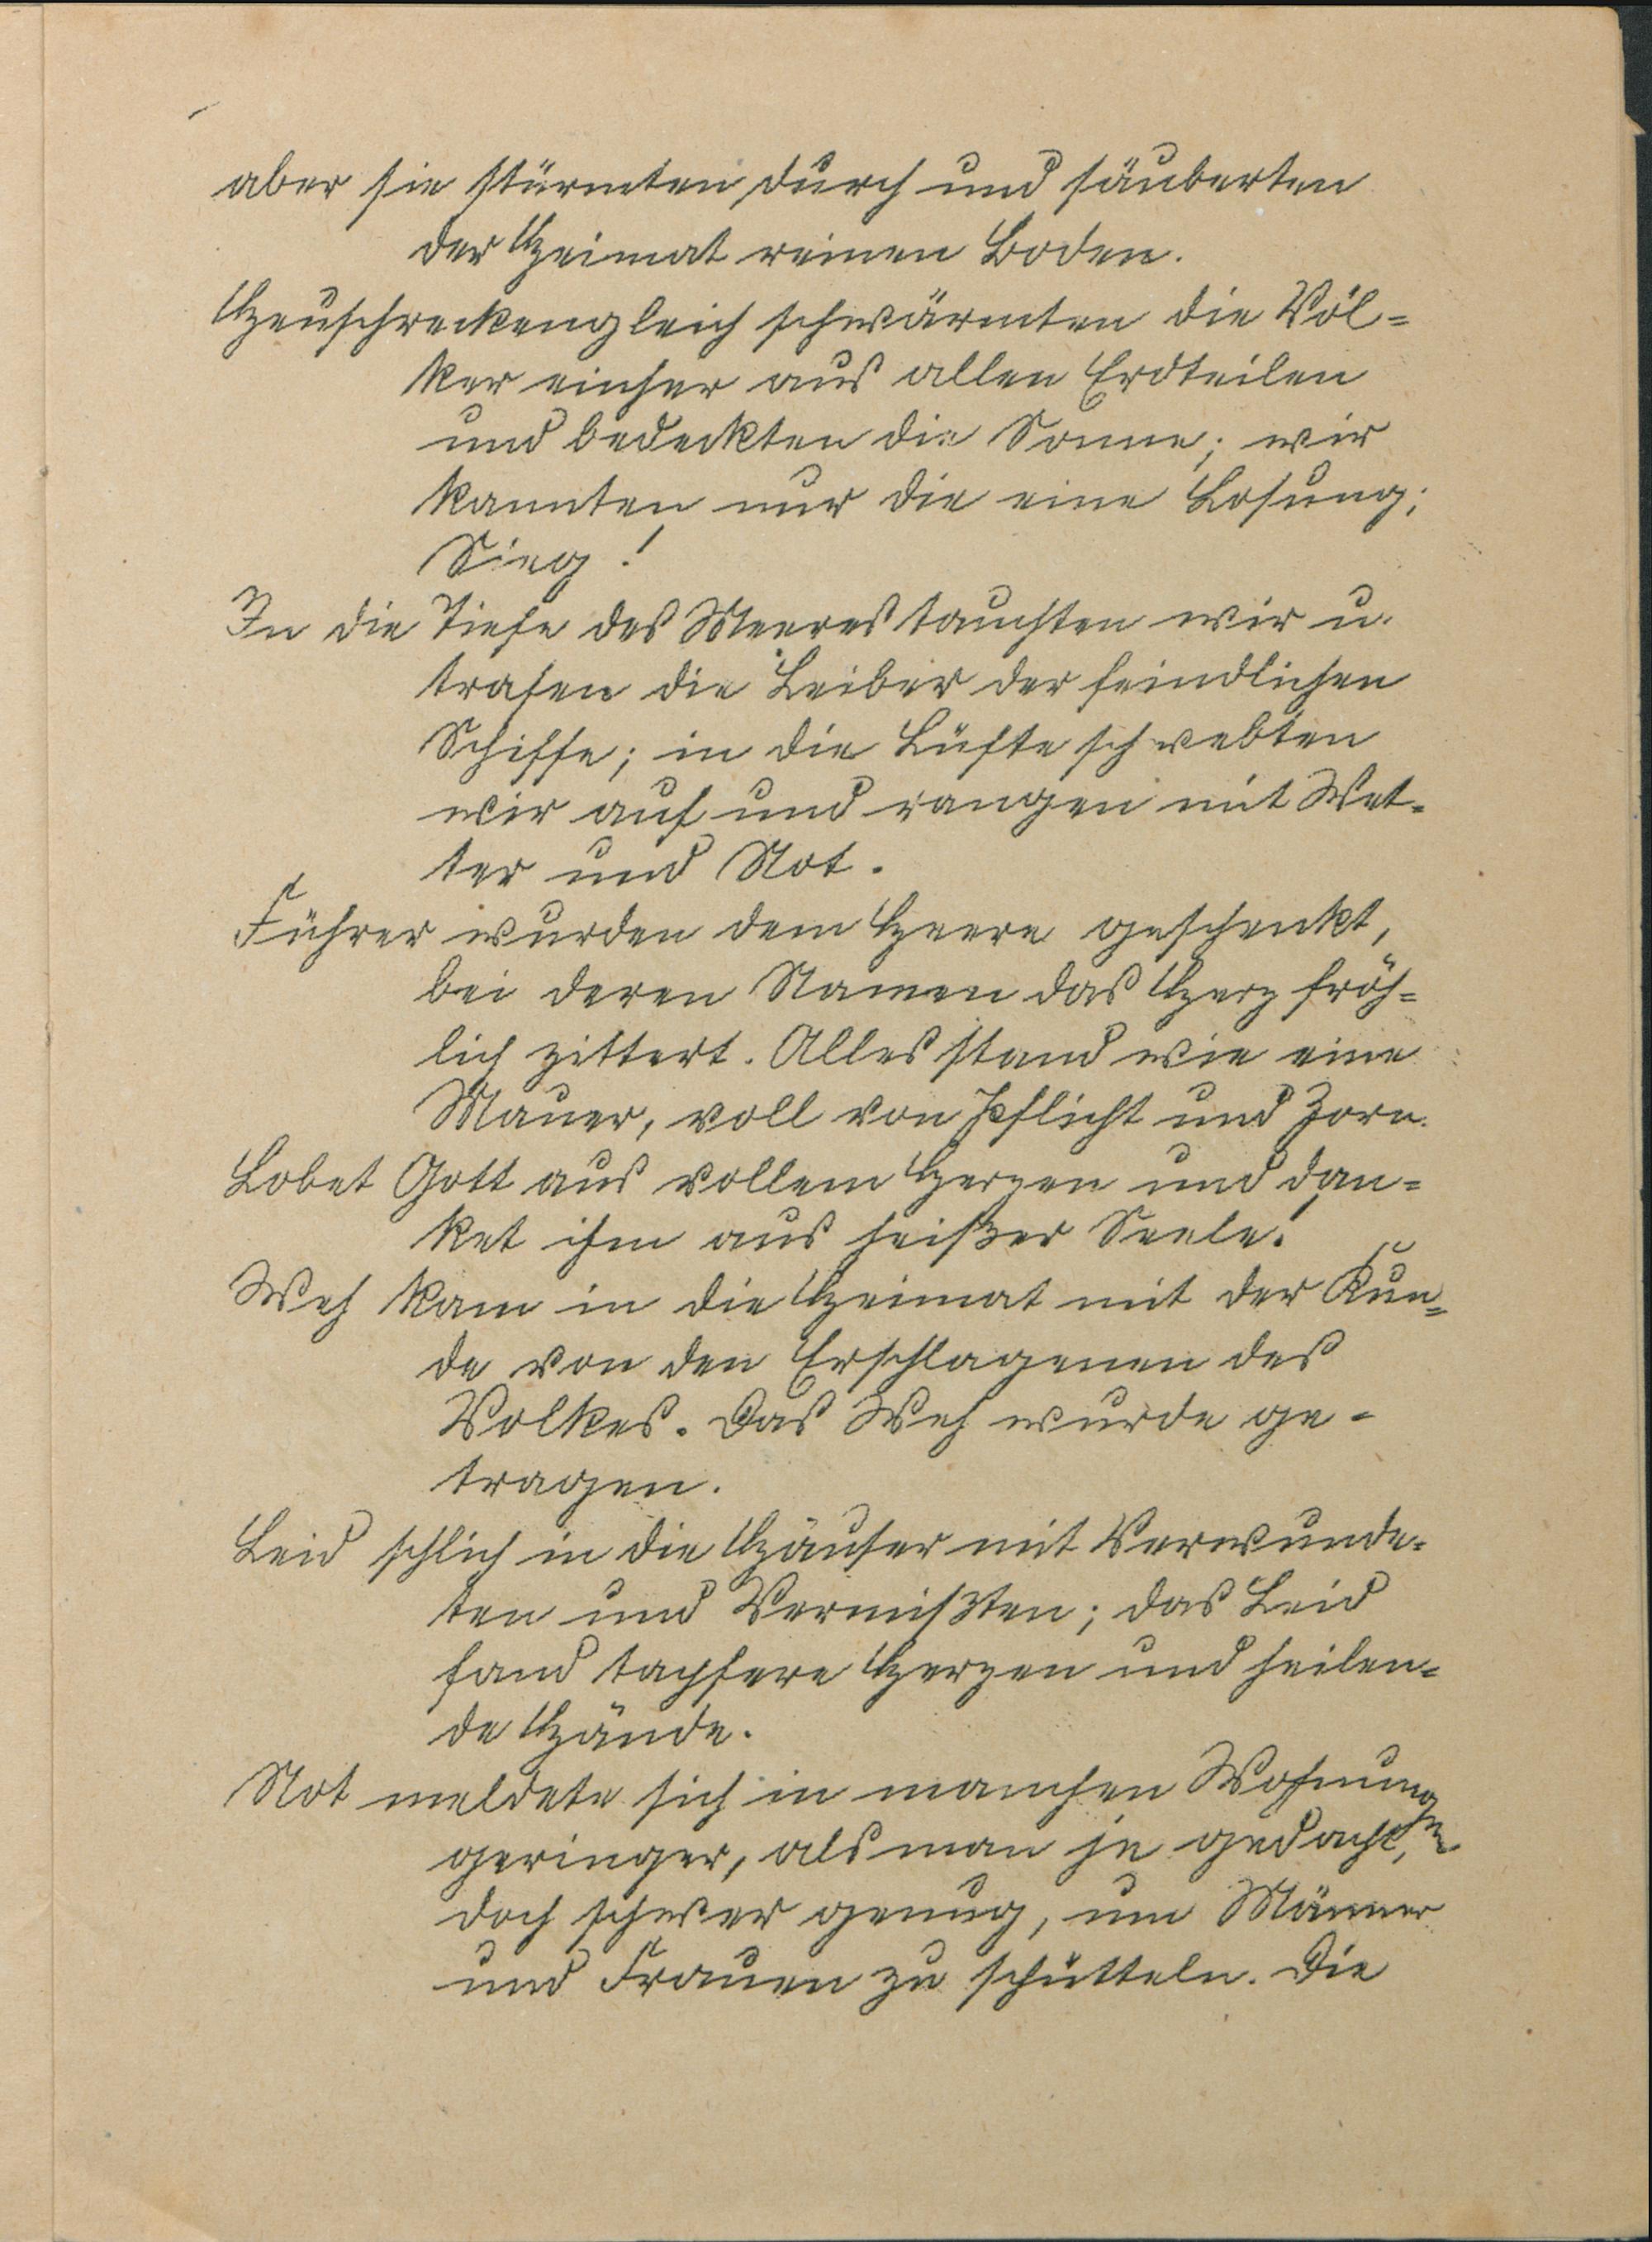 aber sie stürmten durch und säuberten
der Heimat reinen Boden.
Heuschreckengleich schwärmten die Völ=
ker einher aus allen Erdteilen
und bedeckten die Sonne; wir
kannten nur die eine Losung:
Sieg!
In die Tiefe des Meeres tauchten wir u.
trafen die Leiber der feindlichen
Schiffe; in die Lüfte schwebten
wir auf und rangen mit Wet=
ter und Not.
Führer wurden dem Heere geschenkt,
bei deren Namen das Herz fröh=
lich zittert. Alles stand wie eine
Mauer, voll von Pflicht und Zorn.
Lobet Gott aus vollem Herzen und dan=
ket ihm aus heißer Seele!
Weh kam in die Heimat mit der Kun=
de von den Erschlagenen des
Volkes. Das Weh wurde ge=
tragen.
Leid schlich in die Häuser mit Verwunde=
ten und Vermißten; das Leid
fand tapfere Herzen und heilen=
de Hände.
Not meldete sich in manchen Wohnungen
geringer, als man je gedacht,
doch schwer genug, um Männer
und Frauen zu schütteln. Die